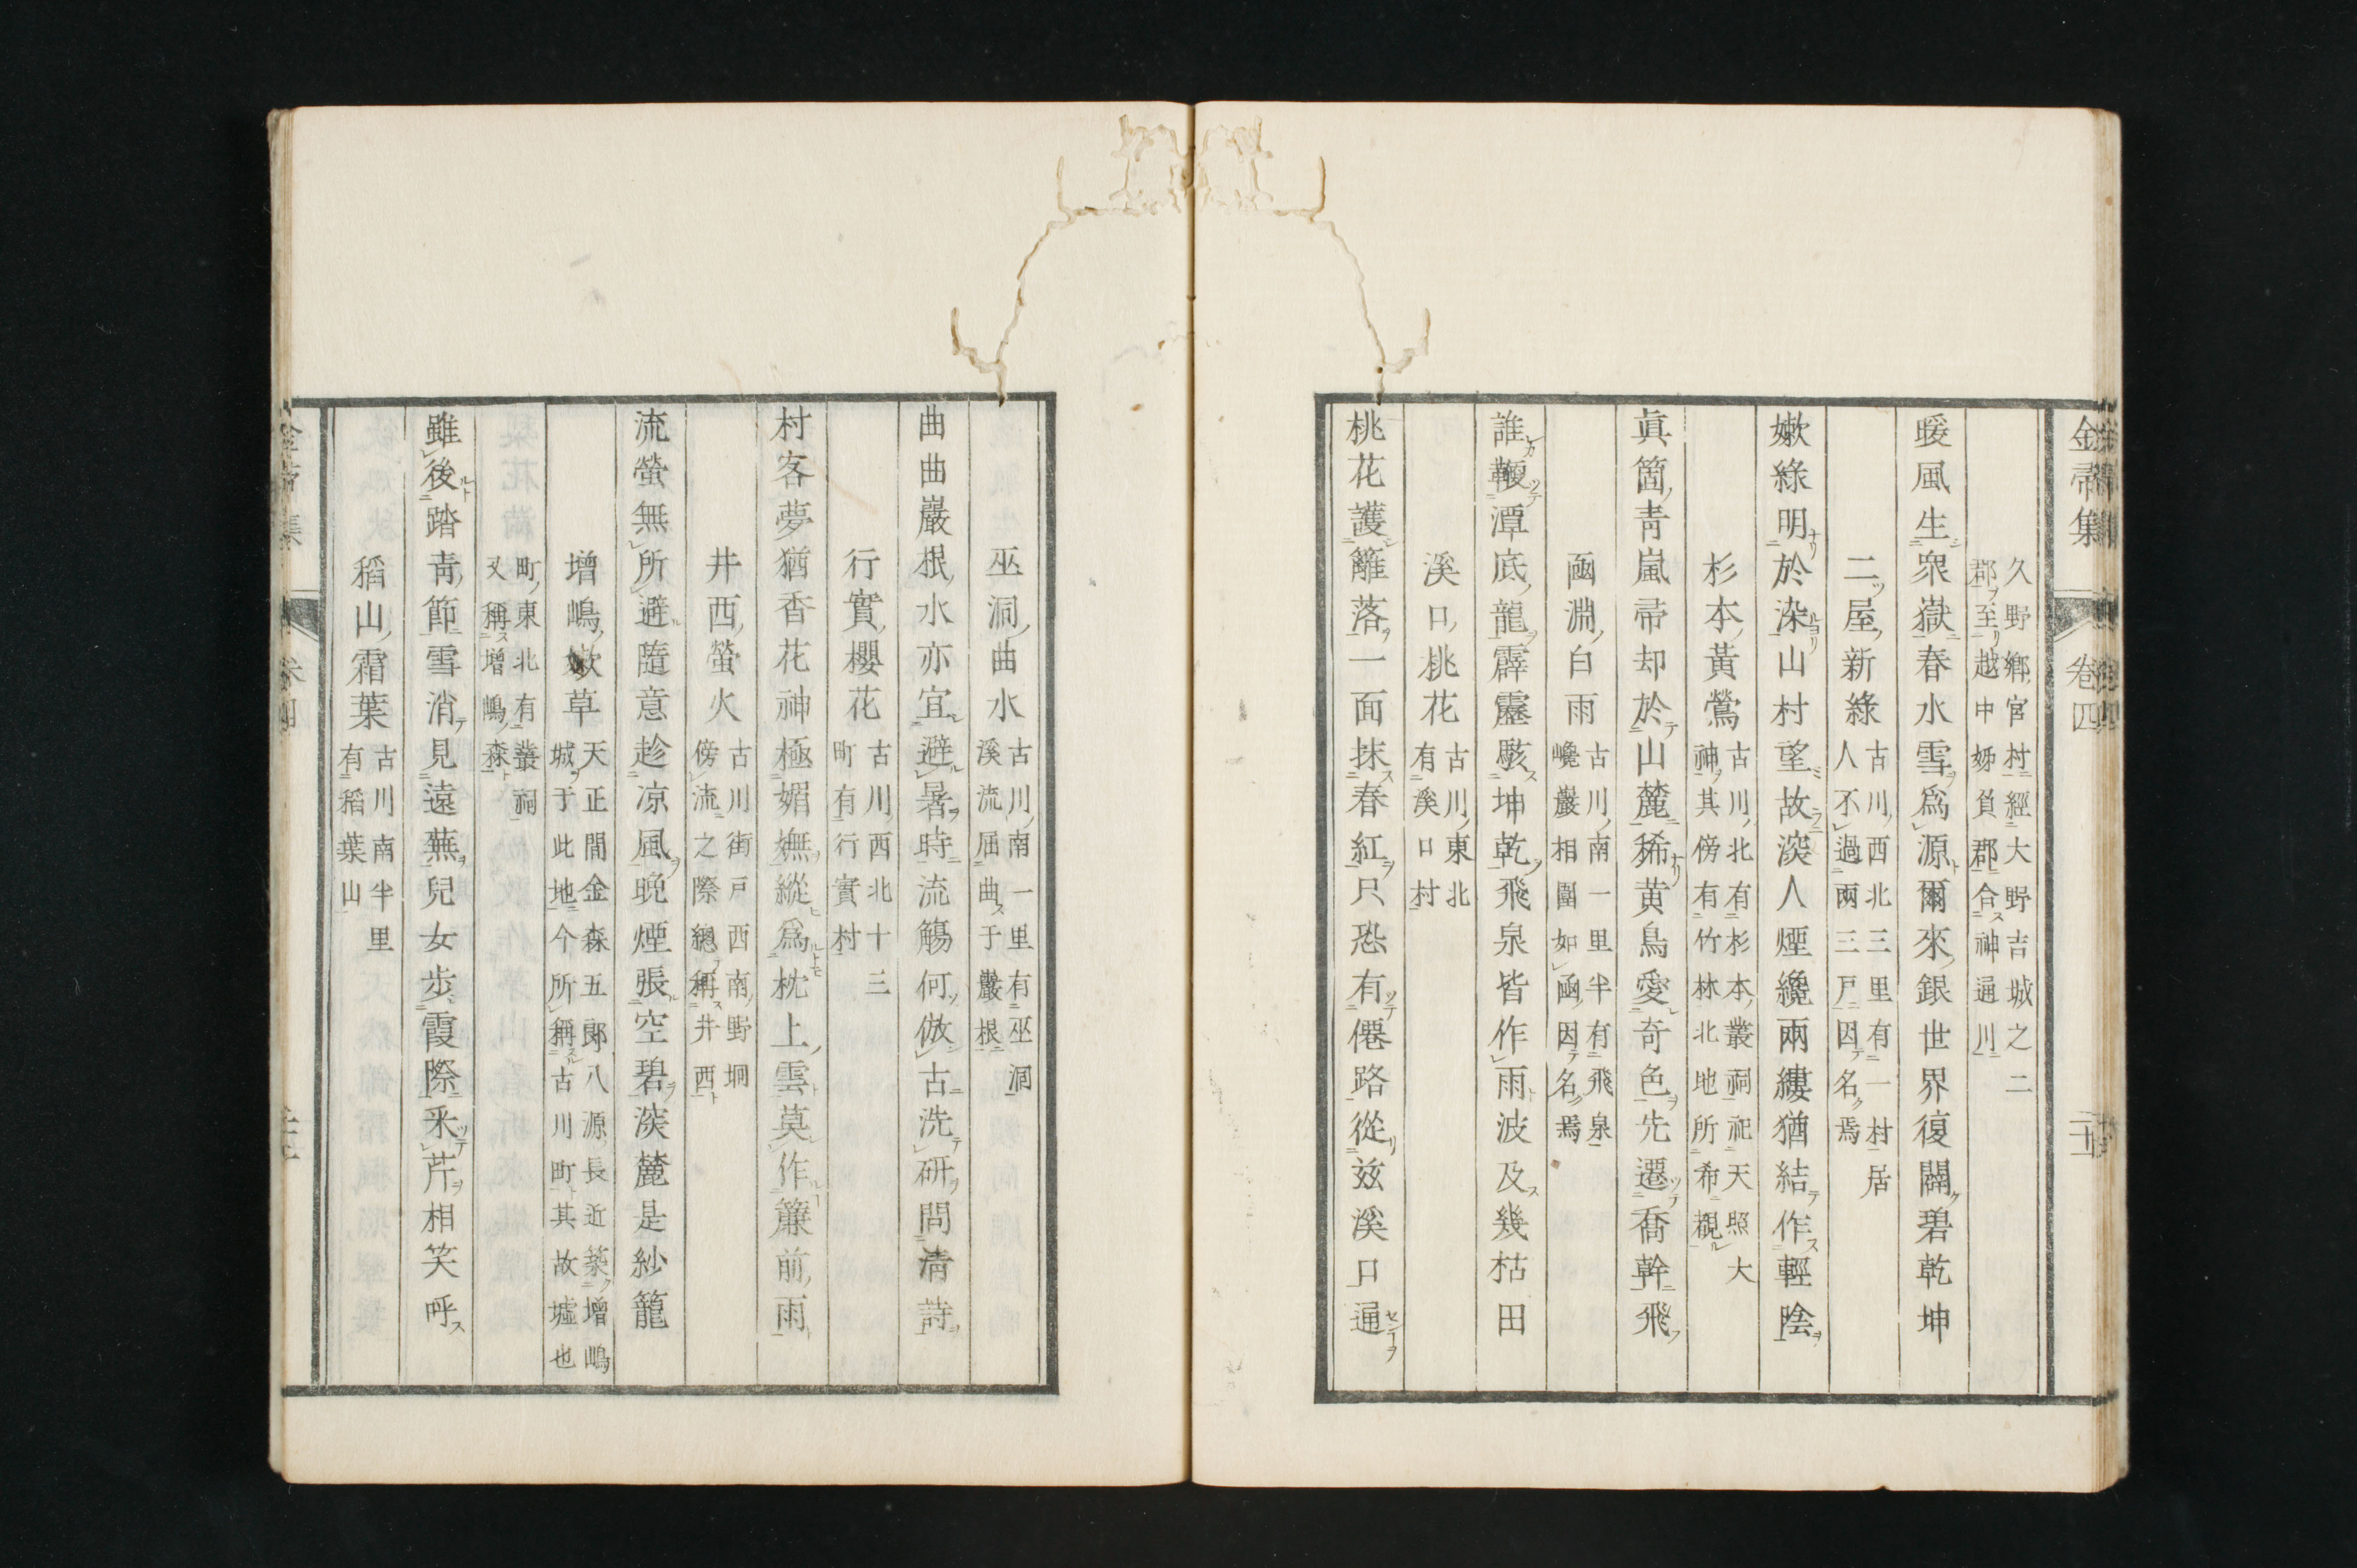 金帚集
卷四
二十
久野鄉宮村經大野吉城之二
郡至越中婦負郡合神通川
暖風生衆嶽春水雪爲源爾來銀世界復闢碧乾坤
二屋新綠
古川西北三里有一村居
人不過兩三戸因名焉
嫰綠明於染山村望故深人煙纔兩縷猶結作輕陰
杉本黃鶯
古川北有杉本叢祠祀天照大
神其傍有竹林北地所希覩
眞箇青嵐帚却於山麓稀黄鳥愛奇色先遷喬幹飛
凾淵白雨
古川南一里半有飛泉
巉巖相圍如凾因名焉
誰鞭潭底龍霹靂駭坤乾飛泉皆作雨波及幾枯田
溪口桃花
古川東北
有溪口村
桃花護籬落一面抹春紅只恐有僊路從茲溪口通
巫洞曲水
古川南一里有巫洞
溪流屈曲于巖根
曲曲巖根水亦宜避暑時流觴何倣古洗研問淸詩
行實櫻花
古川西北十三
町有行實村
村客夢猶香花神極媚嫵縱爲枕上雲莫作簾前雨
井西螢火
古川街戸西南野坰
傍流之際總稱井西
流螢無所避隨意趁凉風晩煙張空碧深麓是紗籠
增嶋嫰草
天正間金森五郞八源長近築增嶋
城于此地今所稱古川町其故墟也
町東北有叢祠
又稱增嶋森
雖後踏靑節雪消見遠蕪兒女步霞際采芹相笑呼
稻山霜葉
古川南半里
有稻葉山